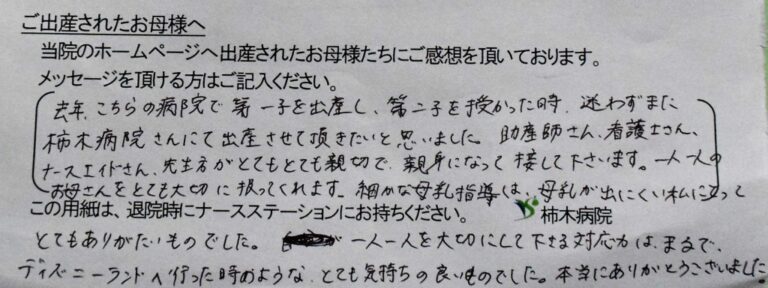 ご出産されたお母様へ
当院のホームページへ出産されたお母様たちにご感想を頂いております。
メッセージを頂ける方はご記入ください。
去年、こちらの病院で第一子を出産し、第二子を授かった時、迷わずまた
柿木病院さんにて出産させて頂きたいと思いました。助産師さん、看護士さん、
ナースエイドさん、先生方がとてもとても親切で、親身になって接して下さいます。一人一人の
お母さんをとても大切に扱ってくれます。細かな母乳指導は、母乳が出にくい私にとって
この用紙は、退院時にナースステーションにお持ちください。 柿木病院
とてもありがたいものでした。 一人一人を大切にして下さる対応力は、まるで、
ディズニーランドへ行った時のような、とても気持ちの良いものでした。本当にありがとうございました。